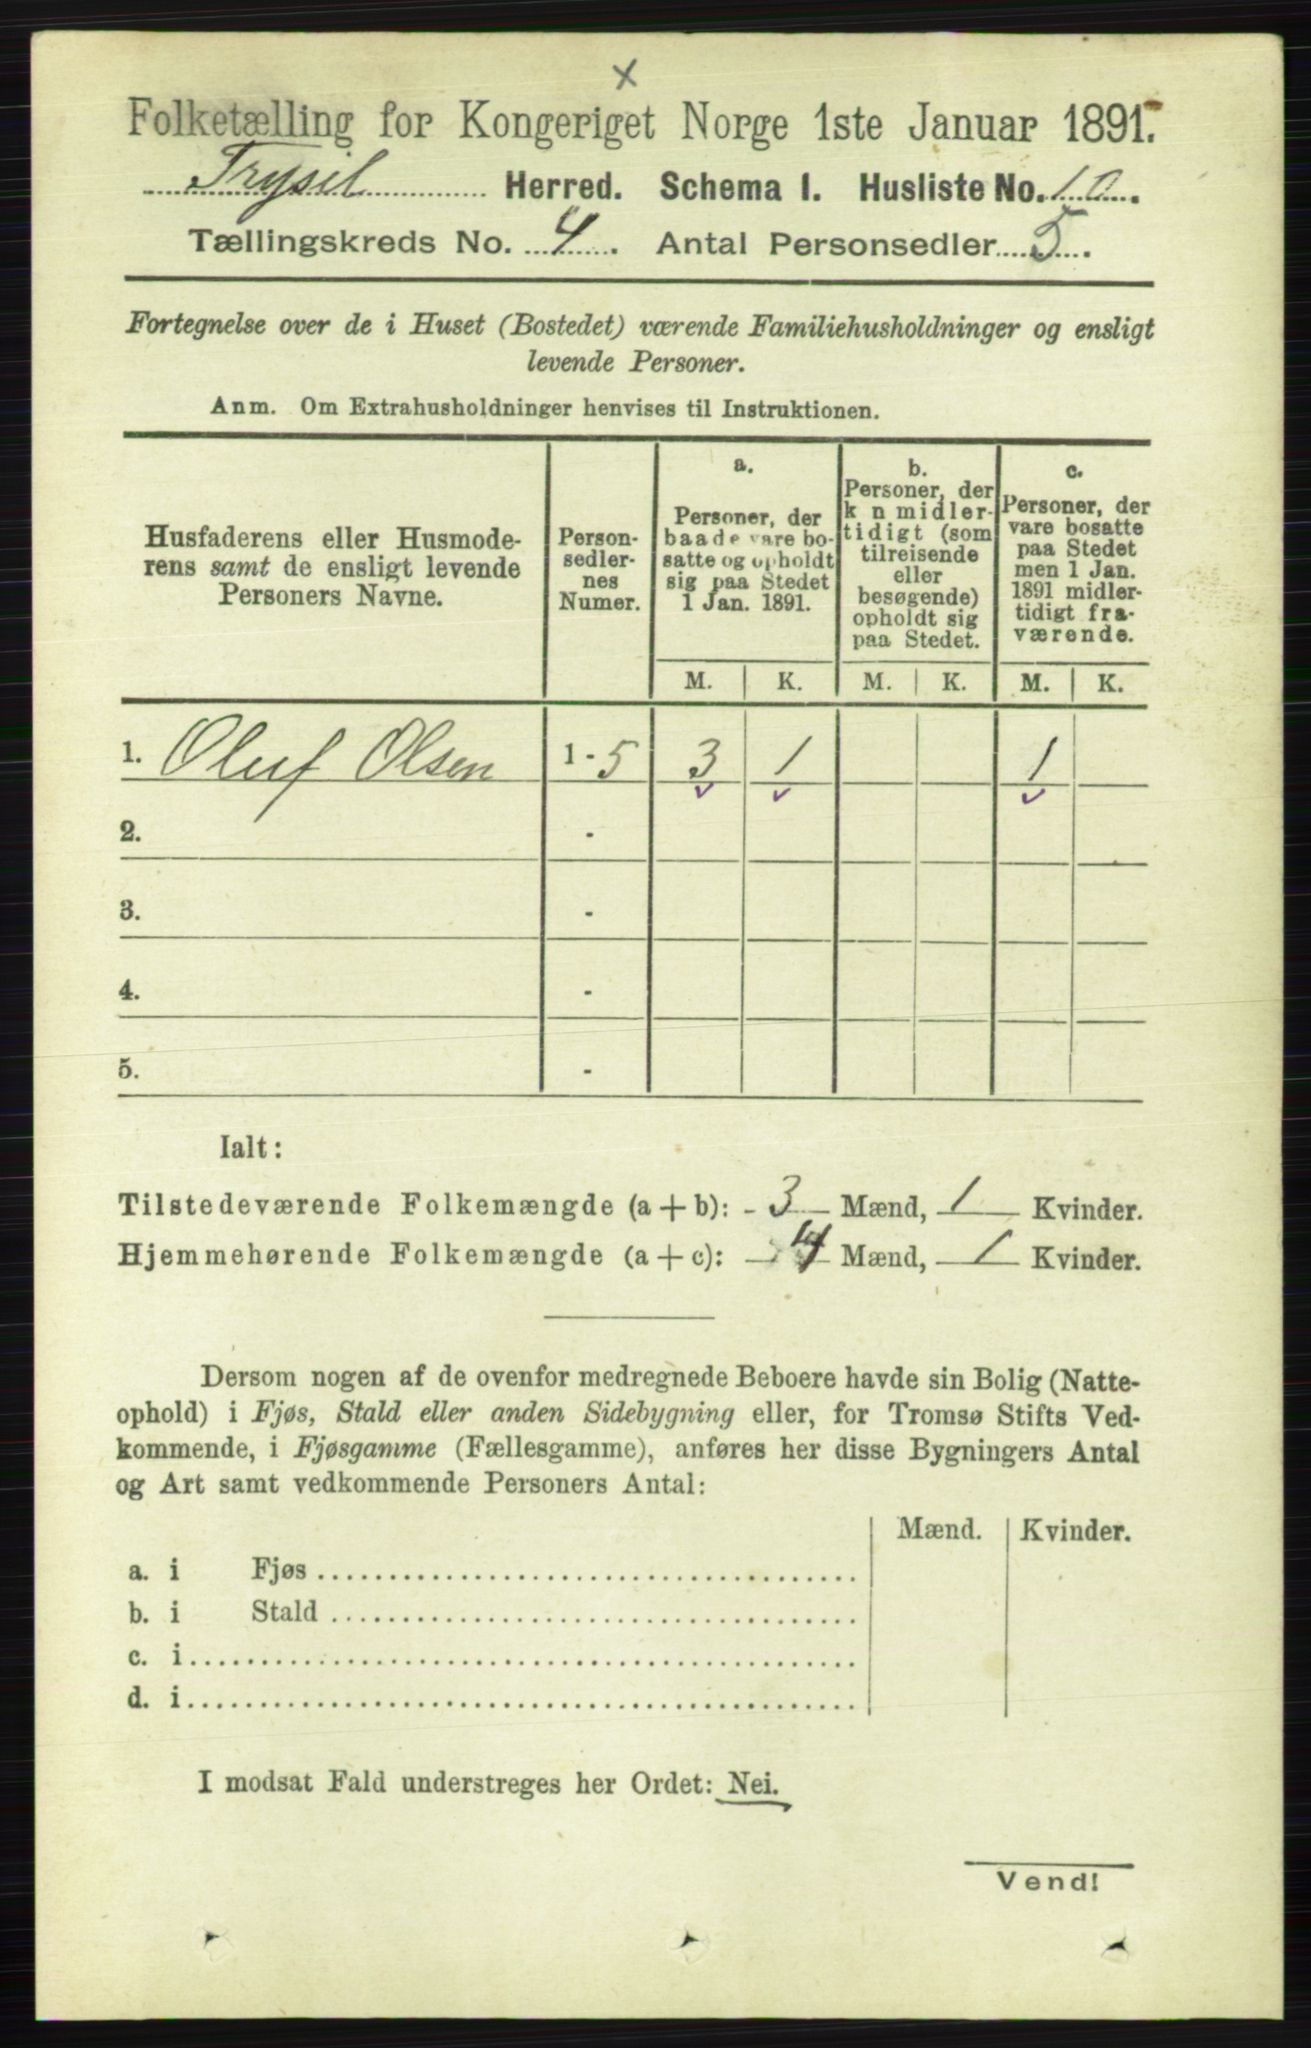 x
Folketælling for Kongeriget Norge 1ste Januar 1891.
Trysil Herred. Schema I. Husliste No. 10.
Tællingskreds No. 4. Antal Personsedler 5.
Fortegnelse over de i Huset (Bostedet) værende Familiehusholdninger og ensligt
levende Personer.
Anm. Om Extrahusholdninger henvises til Instruktionen.
Husfaderens eller Husmode-
rens samt de ensligt levende
Personers Navne.
Person-
sedler-
nes
Numer.
a.
Personer, der
baade vare bo-
satte og opholdt
sig paa Stedet
1 Jan. 1891.
b.
Personer, der
k n midler-
tidigt (som
tilreisende
eller
besøgende)
opholdt sig
paa Stedet.
c.
Personer, der
vare bosatte
paa Stedet
men 1 Jan.
1891 midler-
tidigt fra-
værende.
M. K. M. K. M. K.
1. Oluf Olsen 1 - 5 3 1 1
2. -
3. -
4. -
5. -
Ialt:
Tilstedeværende Folkemængde (a + b): 3 Mænd, 1 Kvinder.
Hjemmehørende Folkemængde (a + c): 4 Mænd, 1 Kvinder.
Dersom nogen af de ovenfor medregnede Beboere havde sin Bolig (Natte-
ophold) i Fjøs, Stald eller anden Sidebygning eller, for Tromsø Stifts Ved-
kommende, i Fjøsgamme (Fællesgamme), anføres her disse Bygningers Antal
og Art samt vedkommende Personers Antal:
Mænd. Kvinder.
a. i Fjøs
b. i Stald
c. i
d. i
I modsat Fald understreges her Ordet: Nei.
Vend!